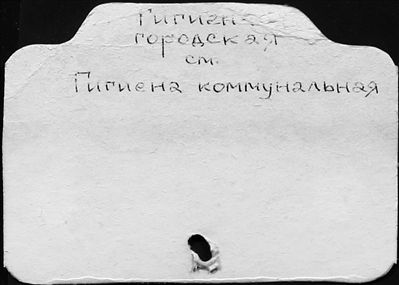 Гигиена
городская
см.
Гигиена коммунальная